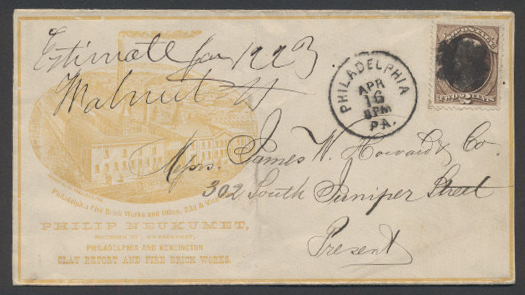 Estimate for 1223
Walnut St
PHILADELPHIA
APR
16
8PM
PA.
TWO CENTS
2
Messrs. James W. Howard & Co.
302 South Juniper Street
Present
Philadelphia Fire Brick Works and Office, 23d & Vine
PHILIP NEUKUMET,
PHILADELPHIA AND KENSINGTON
CLAY RETORT AND FIRE BRICK WORKS.